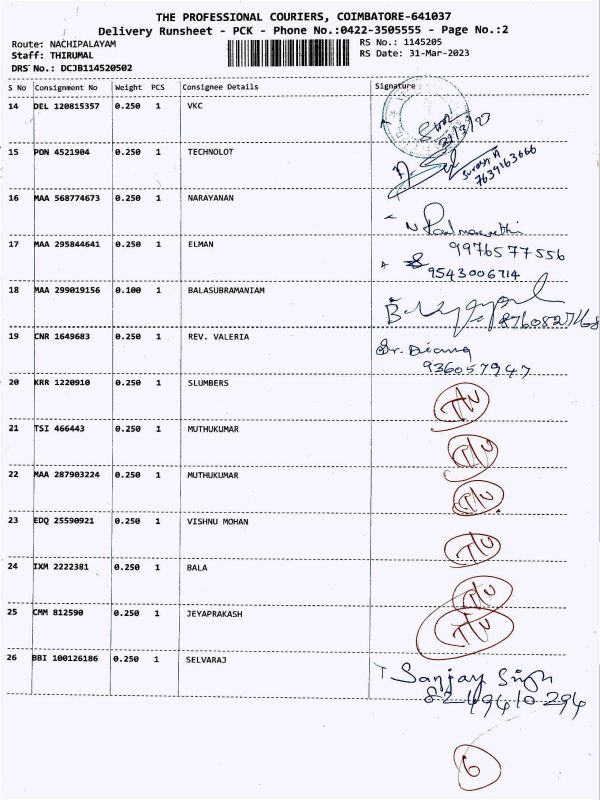 THE PROFESSIONAL COURIERS, COIMBATORE-641037
Delivery Runsheet - PCK - Phone No.:0422-3505555 - Page No.:2
Route: NACHIPALAYAM RS No.: 1145205
Staff: THIRUMAL RS Date: 31-Mar-2023
DRS No.: DCJB114520502
S No Consignment No Weight PCS Consignee Details Signature
14 DEL 120815357 0.250 1 VKC
15 PON 4521904 0.250 1 TECHNOLOT
7639163666
16 MAA 568774673 0.250 1 NARAYANAN
17 MAA 295844641 0.250 1 ELMAN 9976577556
9543006714
18 MAA 299019156 0.100 1 BALASUBRAMANIAM
19 CNR 1649683 0.250 1 REV. VALERIA
936057947
20 KRR 1220910 0.250 1 SLUMBERS T/U
21 TSI 466443 0.250 1 MUTHUKUMAR T/U
22 MAA 287903224 0.250 1 MUTHUKUMAR T/U
23 EDQ 25590921 0.250 1 VISHNU MOHAN T/U
24 IXM 2222381 0.250 1 BALA T/U
25 CMM 812590 0.250 1 JEYAPRAKASH T/U
26 BBI 100126186 0.250 1 SELVARAJ T Sanjay Singh
8249410294
6